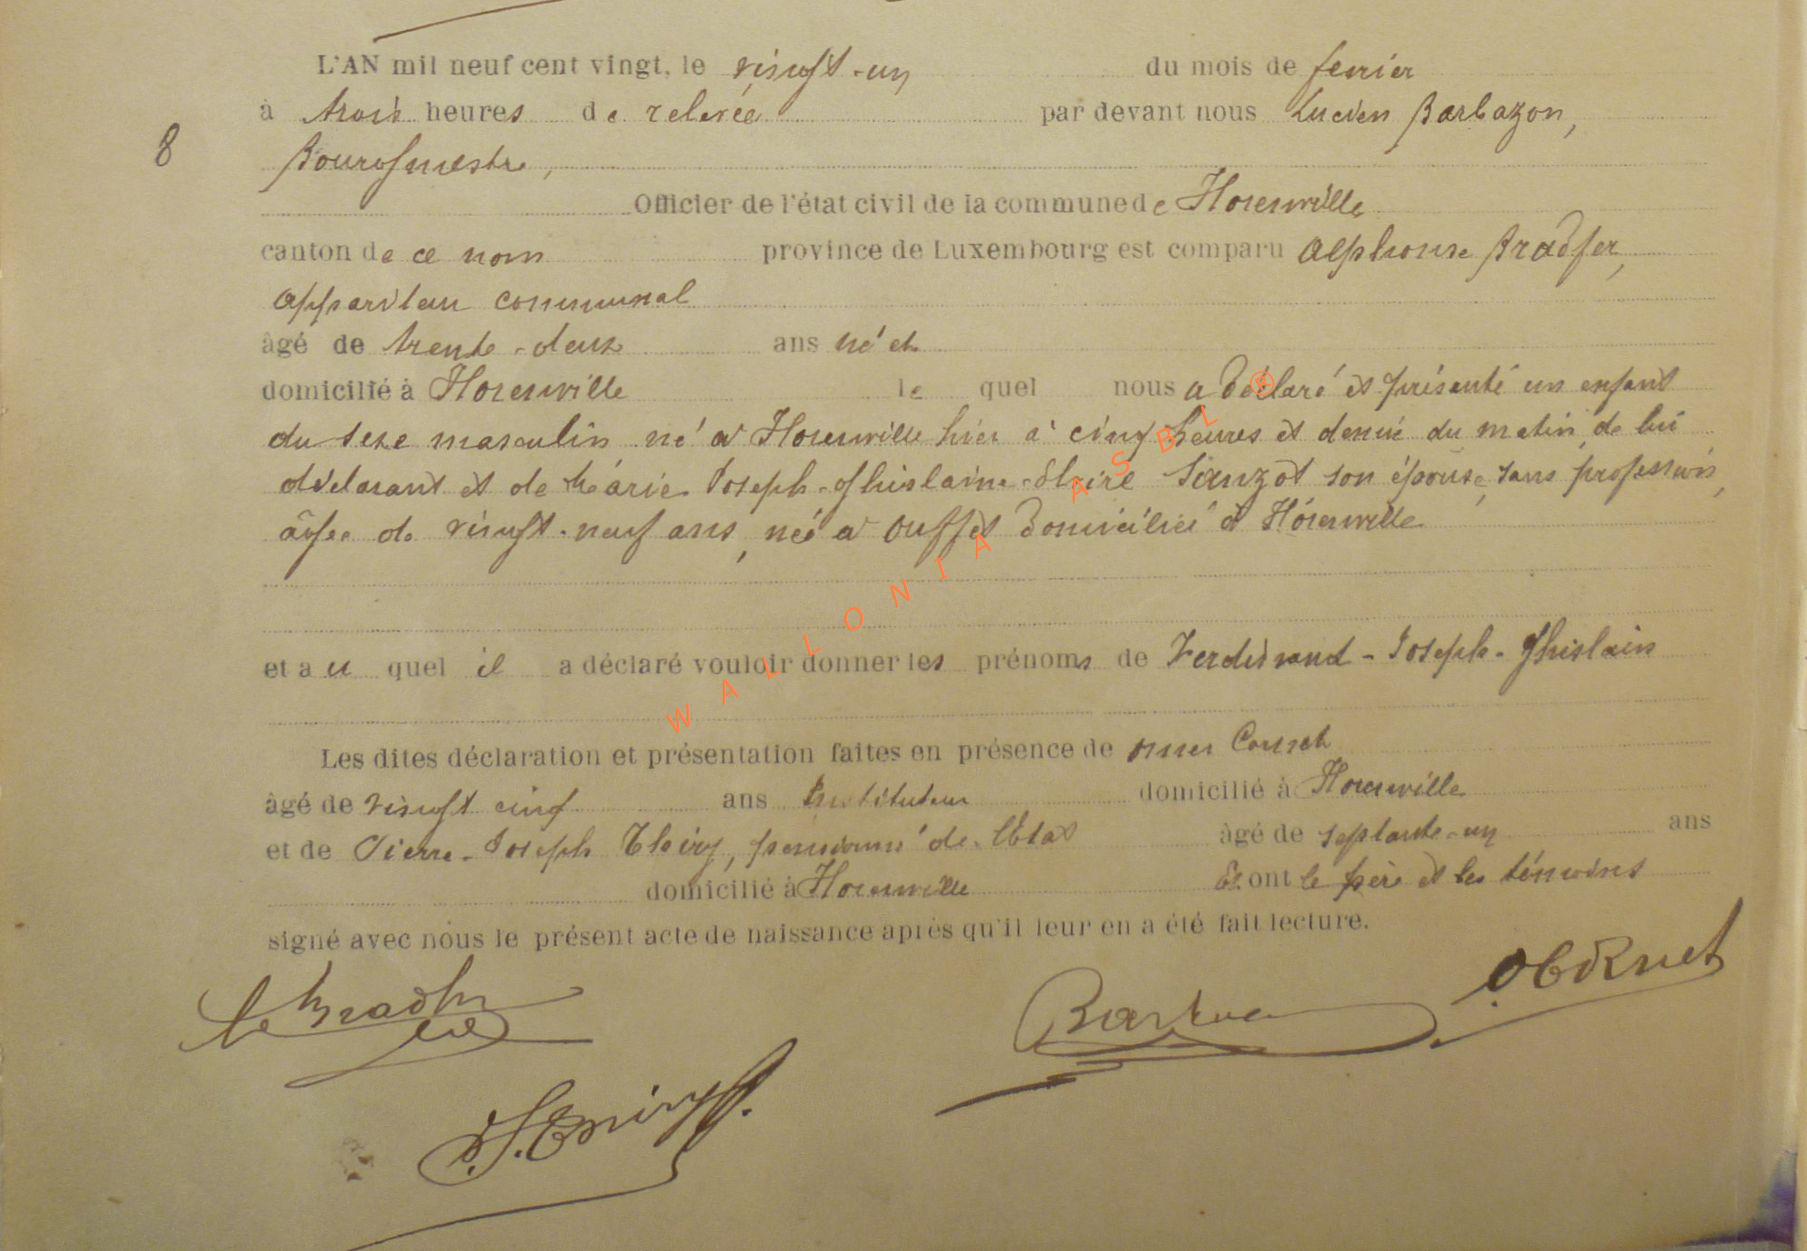 L'AN mil neuf cent vingt, le vingt-un du mois de fevrier
à trois heures de relevée par devant nous Lucien Barbazon,
8 Bourgmestre,
Officier de l'état civil de la commune de Florenville
canton de ce nom province de Luxembourg est comparu Alphonse Bradfer,
appariteur communal
âgé de trente-deux ans né et
domicilié à Florenville le quel nous a déclaré et présenté un enfant
du sexe masculin, né à Florenville hier à cinq heures et demie du matin, de lui
déclarant et de Marie-Joseph-Ghislaine- son épouse, sans profession,
âgée de vingt-neuf ans, née à Ouffet domiciliée à Florenville
et au quel il a déclaré vouloir donner les prénoms de Ferdinand-Joseph-Ghislain
Les dites déclaration et présentation faites en présence de Omer
âgé de vingt cinq ans Instituteur domicilié à Florenville
et de Pierre-Joseph Thiry, pensionné de l'État âgé de septante-un ans
domicilié à Florenville Et ont le père et les témoins
signé avec nous le présent acte de naissance après qu'il leur en a été fait lecture.
WALLONIA ASBL ®